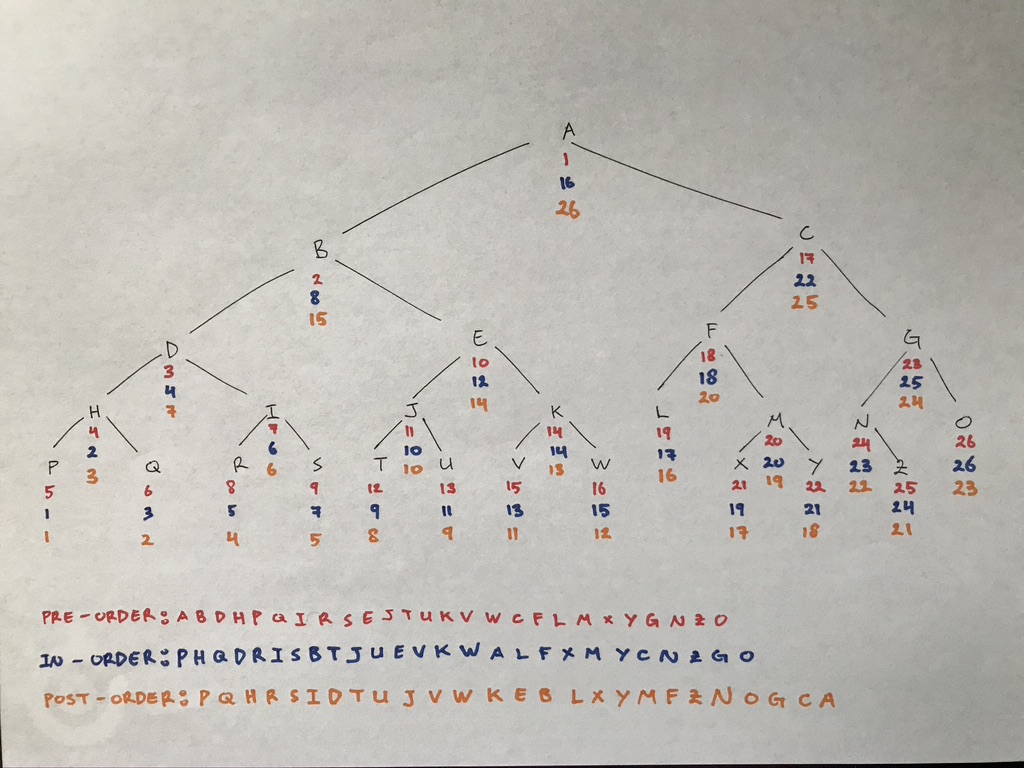 A
1
16
26
B
2
8
15
C
17
22
25
D
3
4
7
E
10
12
14
F
18
18
20
G
23
25
24
H
4
2
3
I
7
6
6
J
11
10
10
K
14
14
13
L
19
17
16
M
20
20
19
N
24
23
22
O
26
26
23
P
5
1
1
Q
6
3
2
R
8
5
4
S
9
7
5
T
12
9
8
U
13
11
9
V
15
13
11
W
16
15
12
X
21
19
17
Y
22
21
18
Z
25
24
21
PRE-ORDER: A B D H P Q I R S E J T U K V W C F L M X Y G N Z O
IN-ORDER: P H Q D R I S B T J U E V K W A L F X M Y C N Z G O
POST-ORDER: P Q H R S I D T U J V W K E B L X Y M F Z N O G C A